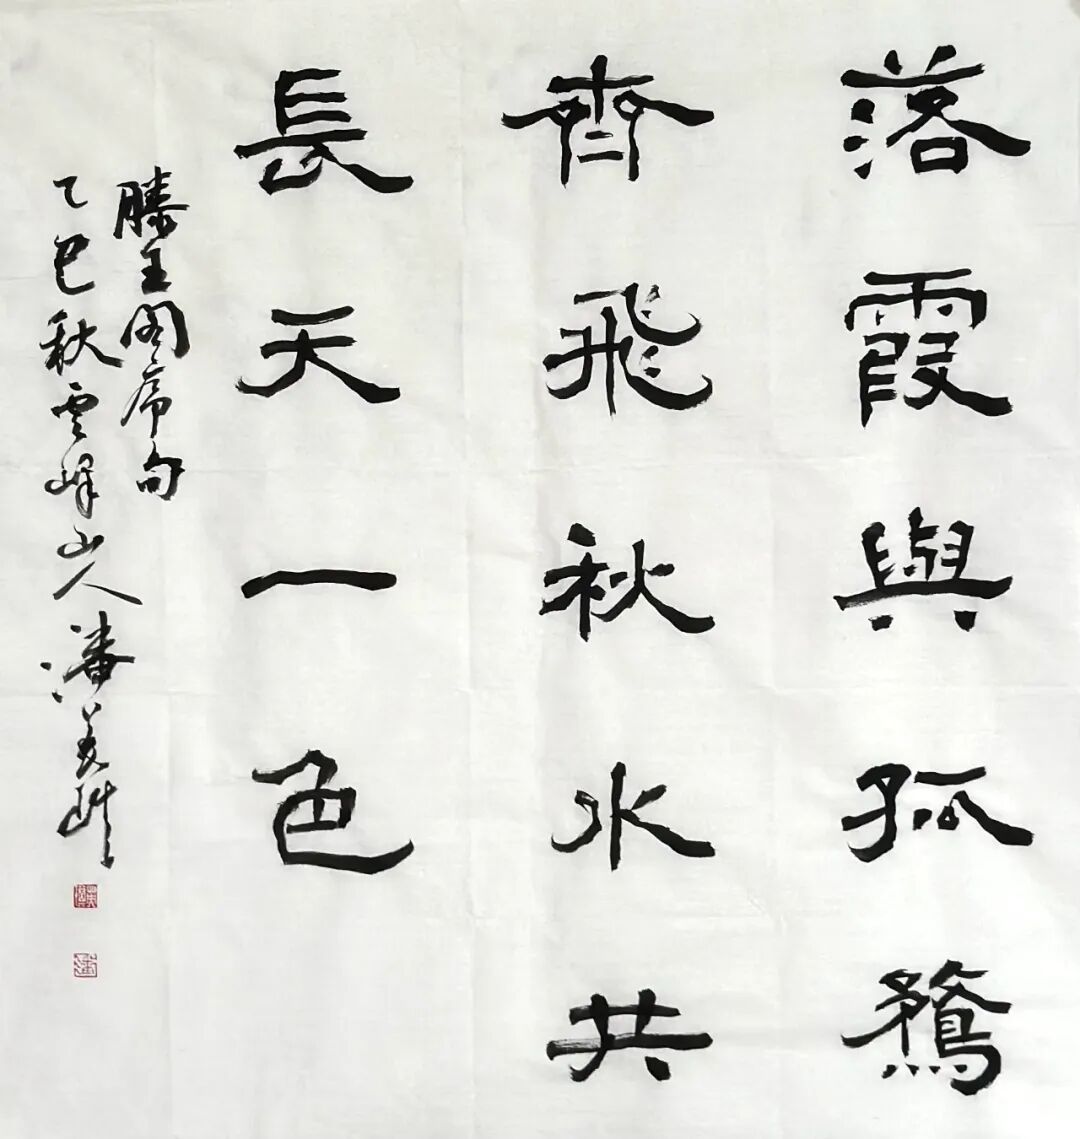 落霞與孤鶩
齊飛秋水共
長天一色
滕王阁序句
乙巳秋雲峰山人潘美